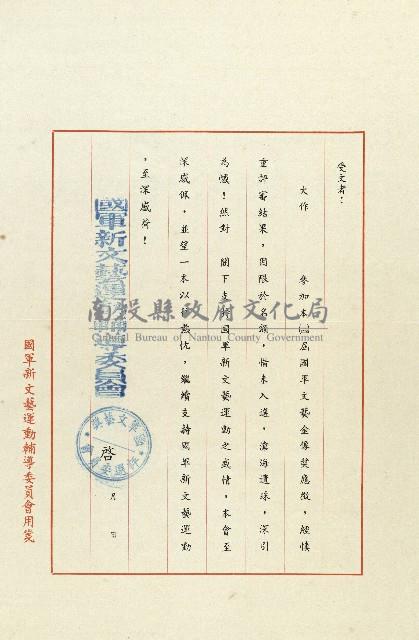 受文者：
大作　　參加本屆國軍文藝金像獎應徵，經慎
重評審結果，因限於名額，惜未入選，滄海遺珠，深引
為憾！然對　閣下支持國軍新文藝運動之情，本會至
深感佩，並望一本以往熱忱，繼續支持國軍新文藝運動
，至深感荷！
國軍新文藝運動輔導委員會
啓　月　日
國軍新文藝運動輔導委員會用箋
南投縣政府文化局
Cultural Bureau of Nantou County Government